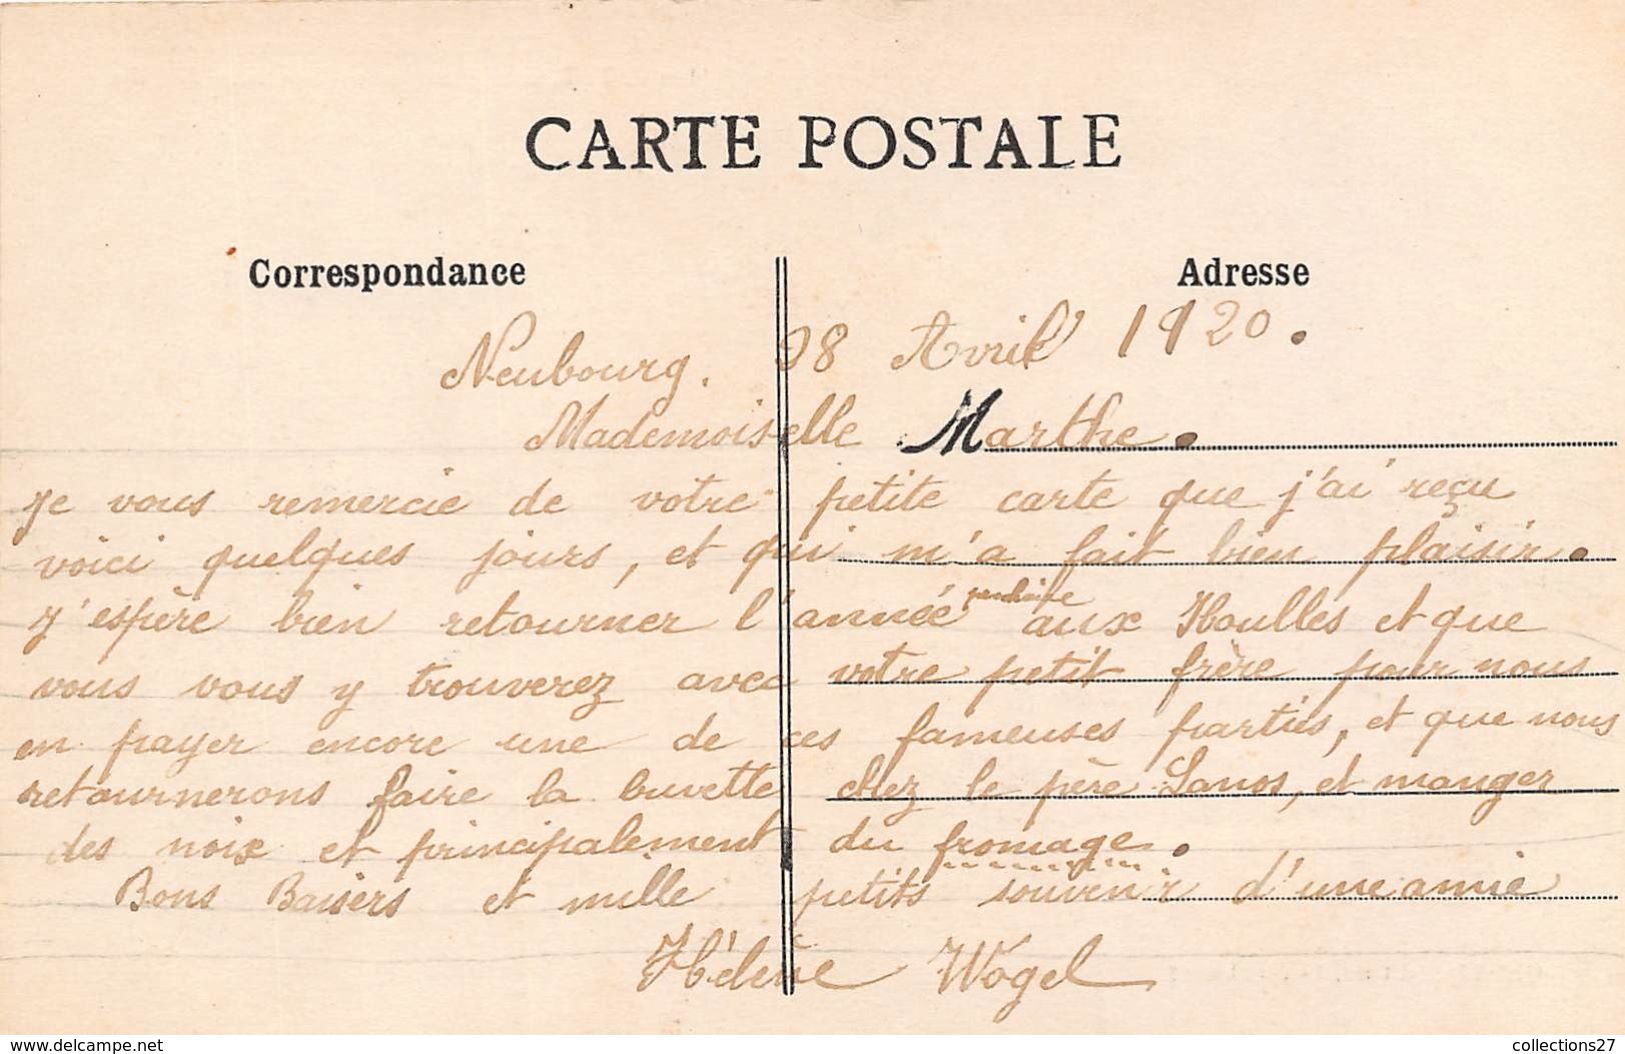 CARTE POSTALE
Correspondance
Adresse
Neubourg. 28 Avril 1920.
Mademoiselle Marthe.
Je vous remercie de votre petite carte que j'ai reçu
voici quelques jours, et qui m'a fait bien plaisir.
J'espère bien retourner l'année prochaine aux Houlles et que
vous vous y trouverez avec votre petit frère pour nous
en payer encore une de ces fameuses parties, et que nous
retournerons faire la buvette chez le père Lanos, et manger
des noix et principalement du fromage.
Bons Baisers et mille petits souvenir d'une amie
Hélène Wogel
www.delcampe.net
collections27